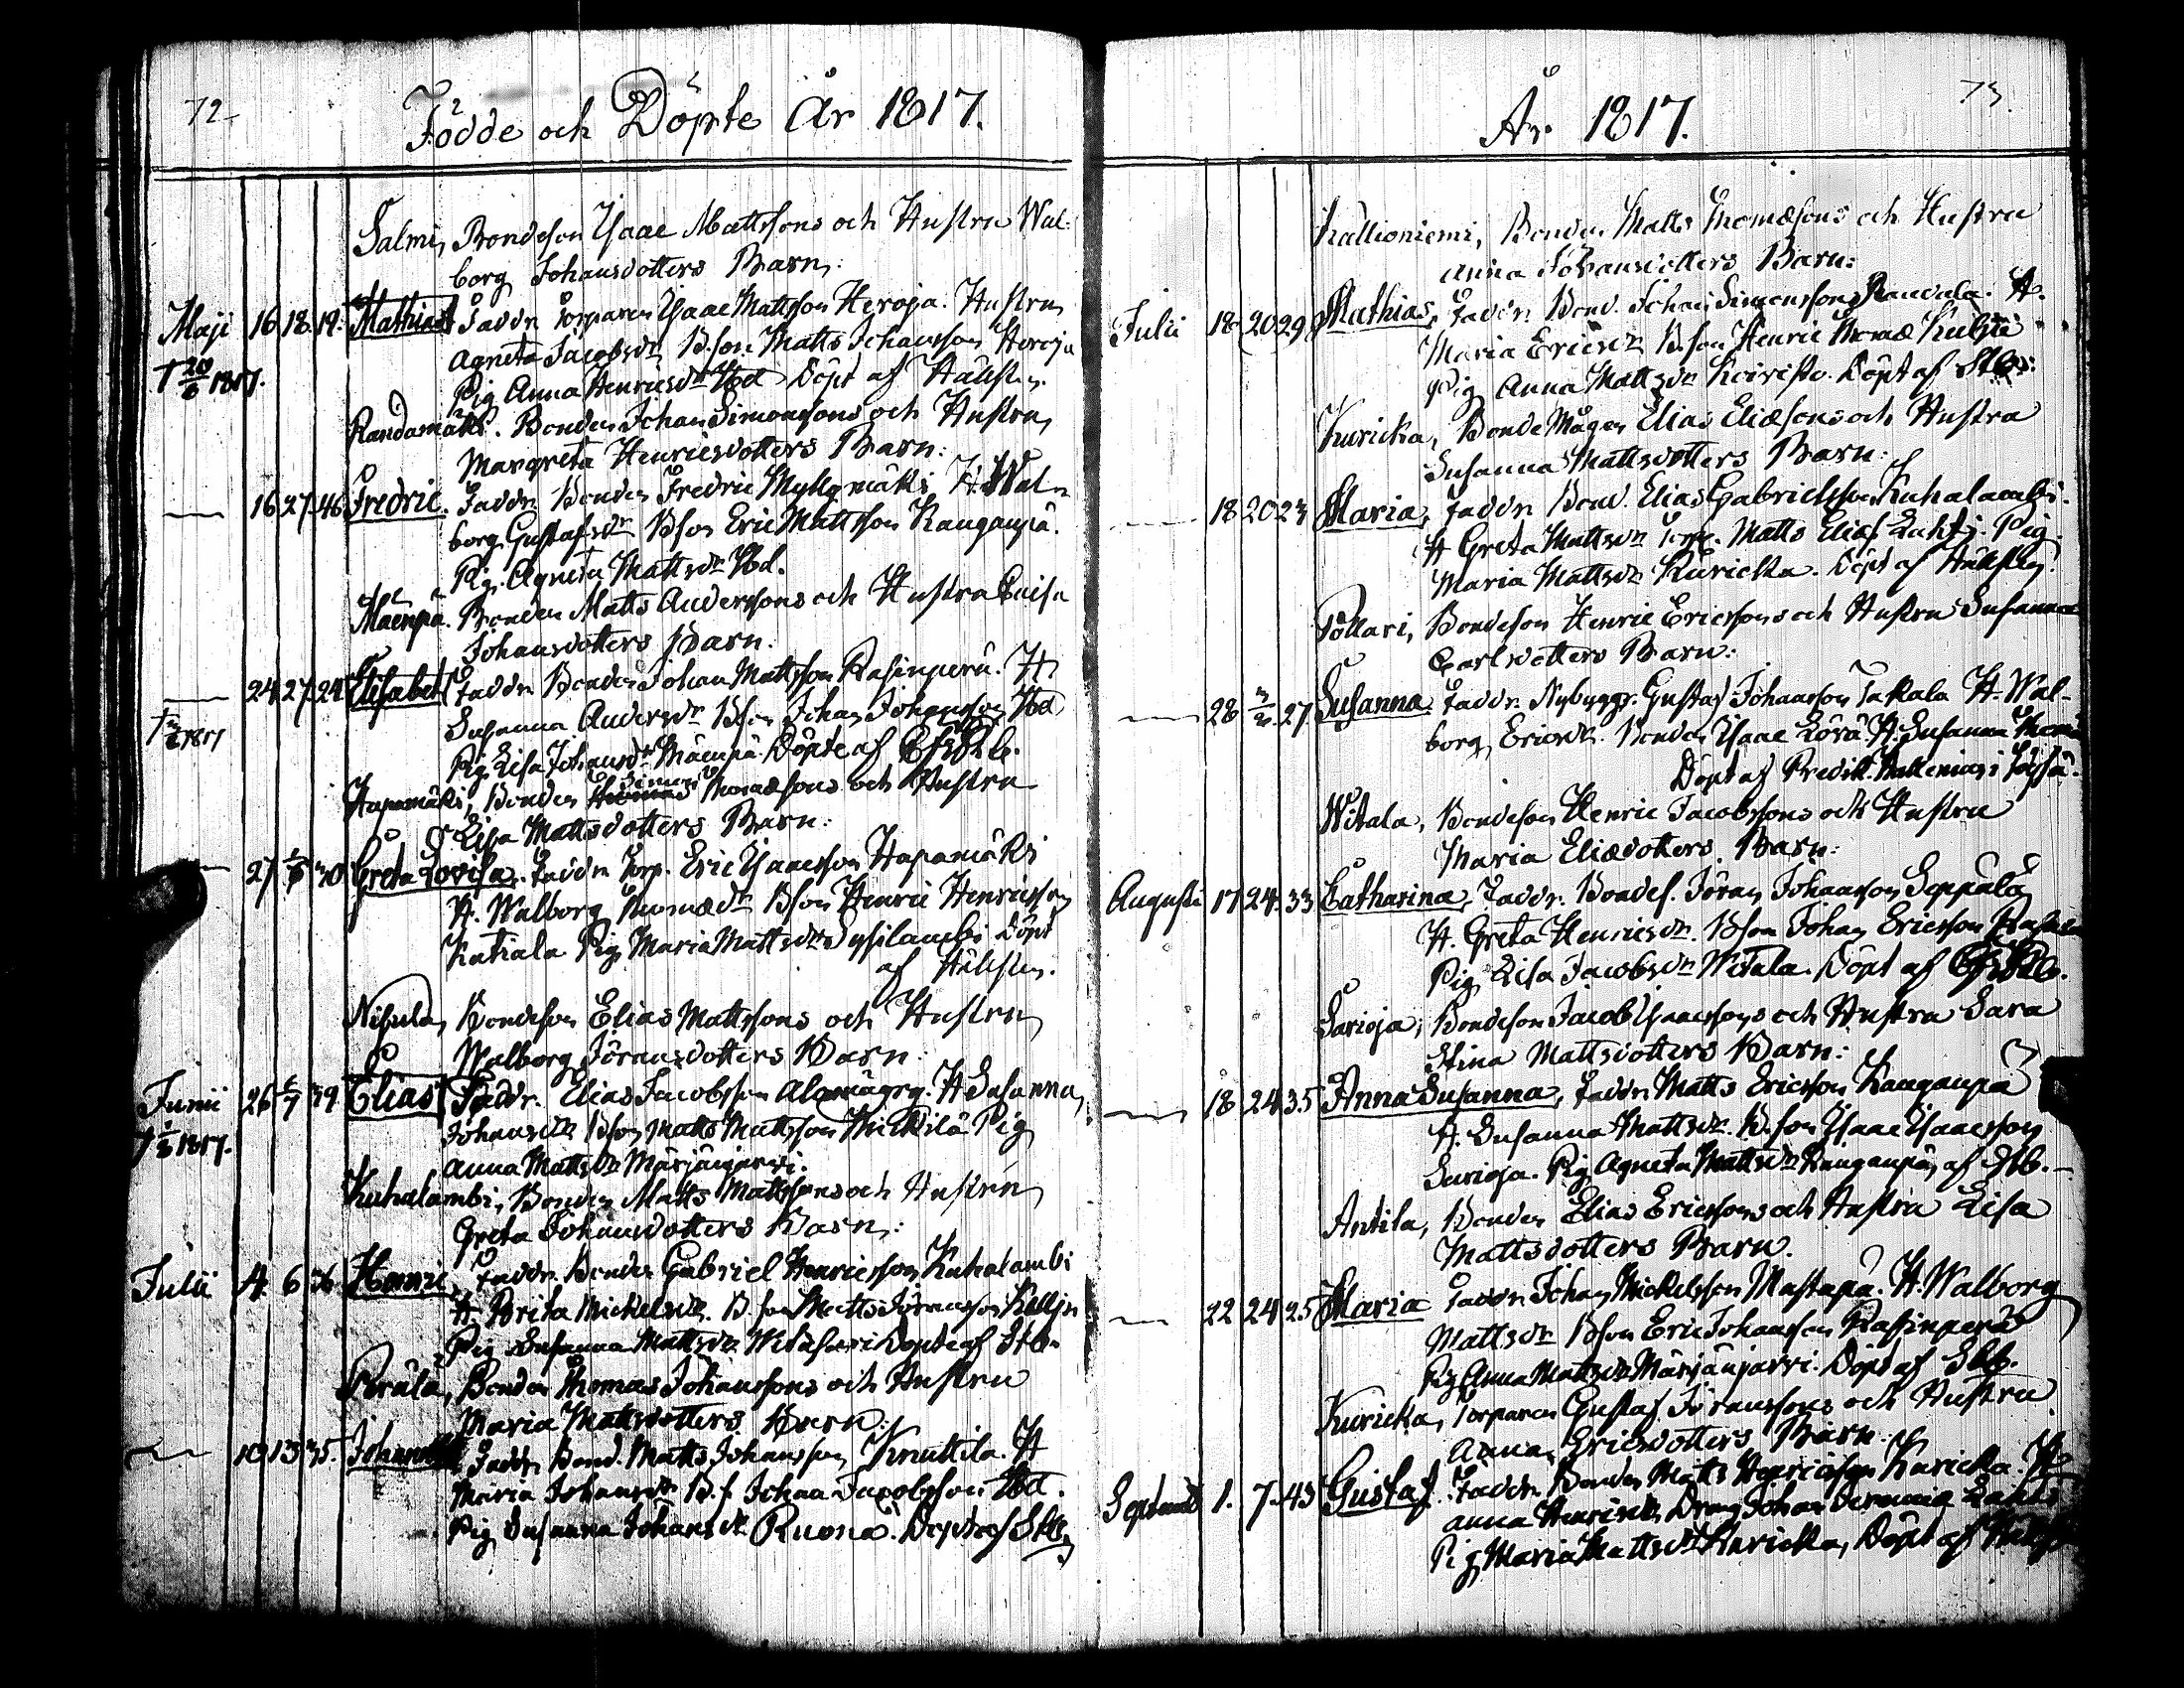 72
Födde och Döpte År 1817.
Salmi, Bondeson Isaac Mattssons och Hustru Wal-
borg Johansdotters Barn:
Maji 16 18 19. Mathias Faddr. Torparen Isaac Mattsson Heroja. Hustru
Agneta Jacobsdr B.son Matts Johansson Heroja
† 1817. Pig. Anna Henricsdr Ibd Döpt af Hällsten.
Randamäki. Bonden Johan Simonssons och Hustru
Margreta Henricsdotters Barn:
— 16 27 46 Fredric. Faddr. Bonden Fredric Myllymäki H. Wal-
borg Gustafsdr Bson Eric Mattsson Kanganpä.
Pig. Agneta Mattsdr Ibd.
Mäenpä. Bonden Matts Anderssons och Hustru Caisa
Johansdotters Barn:
— 24 27 24 Elisabet Faddr. Bonden Johan Mattsson Rasinperä. H.
Susanna Andersdr Bson Johan Johansson Ibd
† 1817 Pig. Lisa Johansdr Mäenpä Döpte af
Hapamäki, Bonden Simon Thomæsons och Hustru
Lisa Mattsdotters Barn:
— 27 30 Greta Lovisa. Faddr. Torp. Eric Isaacsson Hapamäki
H. Walborg Thomædr Bson Henric Henricsson
Katiala Pig. Maria Mattsdr Syssilambi Döpt
af Hällsten.
Nisula, Bondeson Elias Mattssons och Hustru
Walborg Jöransdotters Barn:
Junii 26 39 Elias Faddr. Elias Jacobsson H Susanna
Johansdr Bson Matts Mattsson Mickilä Pig
† 1817. Anna Mattsdr Märjänjärvi.
Kuhalambi, Bonden Matts Mattssons och Hustru
Greta Johansdotters Barn:
Julii 4 6 Henric Faddr. Bonden Gabriel Henricsson Kuhalambi
H. Brita Mickelsdr. B.son Matts Jöransson
Pig Susanna Mattsdr Witasari Döpte af Stbr.
Peräla, Bonden Thomas Johanssons och Hustru
Maria Mattsdotters Barn:
— 10 13 35. Johannes Faddr. Bond. Matts Johansson Knuttila. H
Maria Johansdr B.s Johan Jacobsson Ibd.
Pig Susanna Johansdr Ruona. Döpt af Stbr
73.
År 1817.
Kallioniemi, Bonden Matts Thomæsons och Hustru
Anna Johansdotters Barn:
Julii 18 20 29 Mathias, Faddr. Bond. Johan Simonsson Randala. H.
Maria Ericsdr B.son Henric Thomæ
Pig Anna Mattsdr Koivisto. Döpt af Stbr.
Kuricka, Bonde Mågen Elias Eliæsons och Hustru
Susanna Mattsdotters Barn:
— 18 20 23 Maria, Faddr. Bond. Elias Gabrielsson Kuhalambi.
H Greta Mattsdr Torp. Matts Eliæs Lahti. Pig
Maria Mattsdr Kuricka. Döpt af Hällsten.
Pollari, Bondeson Henric Ericssons och Hustru Susanna
Carlsdotters Barn:
— 28 27 Susanna. Faddr. Nybyggr. Gustaf Johansson Takala H. Wal-
borg Ericsdr. Bonden Isaac H. Susanna
Döpt af Predik.
Witala, Bondeson Henric Jacobssons och Hustru
Maria Eliædotters Barn:
Augusti 17 24 33 Catharina, Faddr. Bondes. Jöran Johansson Seppälä
H. Greta Henricsdr. Bson Johan Ericsson
Pig Lisa Jacobsdr Witala. Döpt af
Sarioja, Bondeson Jacob Isaacssons och Hustru Sara
Stina Mattsdotters Barn:
— 18 24 35 Anna Susanna, Faddr. Matts Ericsson Kangaspä
H. Susanna Mattsdr. B.son Isaac Isaacsson
Sarioja. Pig Agneta Mattsdr Kangaspä, af Stb.
Antila, Bonden Elias Ericssons och Hustru Lisa
Mattsdotters Barn.
— 22 24 25 Maria Faddr. Johan Mickelsson Mustapä. H. Walborg
Mattsdr Bson Eric Johansson Rasinperä
Pig Anna Mattsdr Märjänjärvi. Döpt af Stb.
Kuricka, Torparen Gustaf Jöranssons och Hustru
Anna Ericsdotters Barn:
Septemb 1. 7 43 Gustaf. Faddr. Bonden Matts Henricsson Kuricka. H
Anna Henricsdr Dräng Johan Jeremiæ
Pig Maria Mattsdr Kuricka, Döpt af